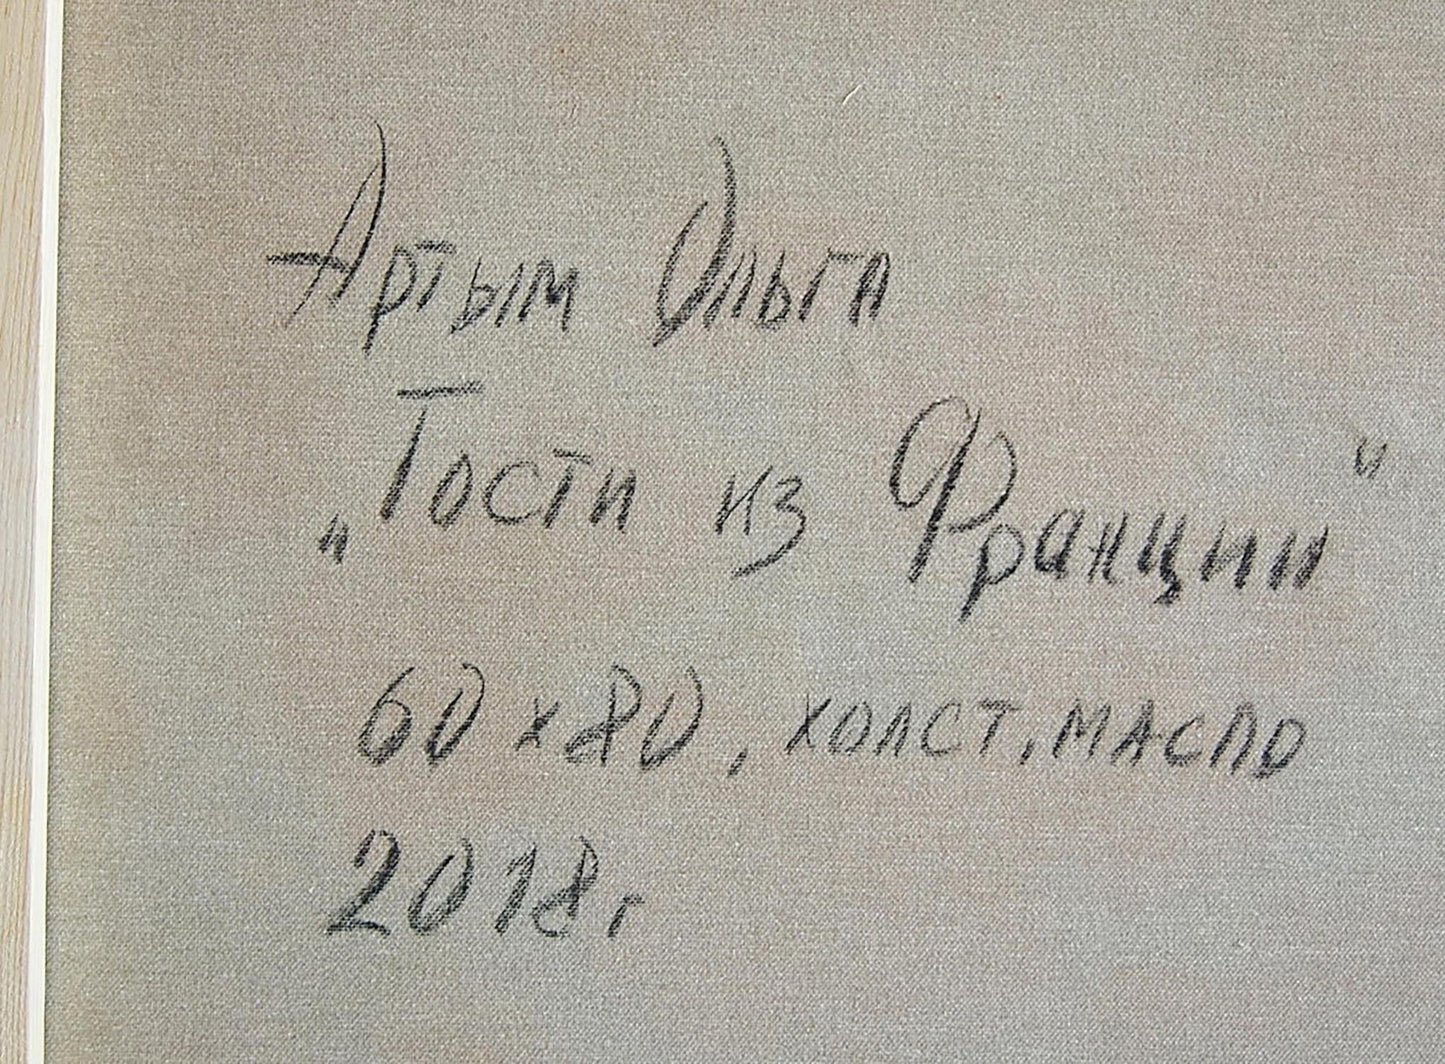 Артым Ольга
„Гости из Франции"
60 х 80, холст, масло
2018г